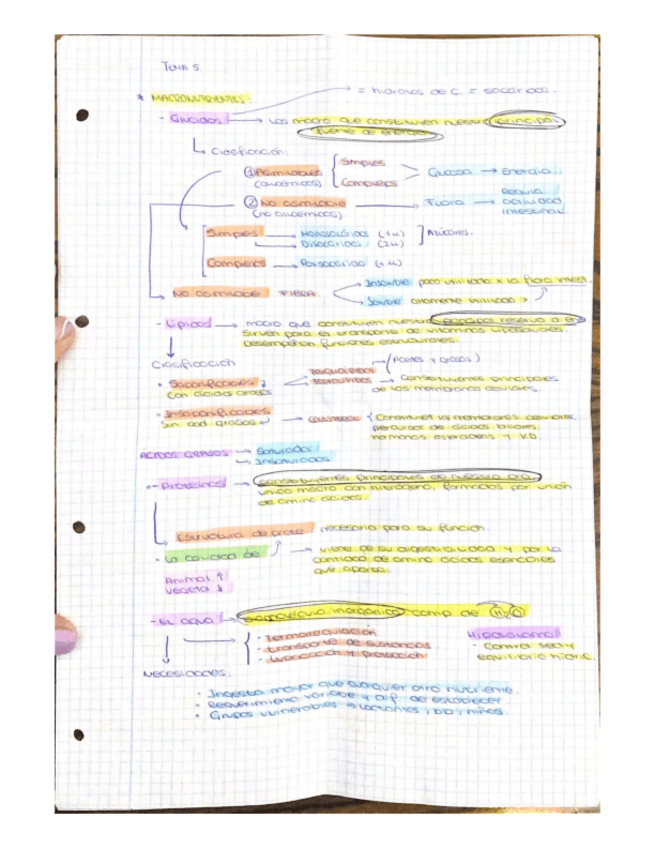 TEMA 5.
* MACRONUTRIENTES.
= hidratos de C. = sacáridos.
- Glúcidos → Los macro que constituyen nuestra principal
fuente de energía
↳ Clasificación:
① Asimilables Simples
(glucémicos) Complejos Glucosa → Energía
② No asimilable → Fibra → Regula
(no glucémicos) actividad
intestinal
Simples → Monosacáridos (1u) ] Azúcares.
→ Disacáridos (2u)
Complejos → Polisacárido (+u)
No asimilable FIBRA Insoluble poco utilizada x la flora intest.
Soluble altamente utilizada
- Lípidos → macro que constituyen nuestra energía reserva
Sirven para el transporte de vitaminas liposolubles.
Desempeñan funciones estructurales.
Clasificación
· Saponificables Triglicéridos → (Aceites y grasas)
con ácidos grasos Fosfolípidos → constituyentes principales
de las membranas celulares.
· Insaponificables
Sin acd grasos → Colesterol { Constituyen las membranas celulares,
precursor de ácidos biliares,
hormonas esteroideas y V.D.
ÁCIDOS GRASOS → Saturados
→ Insaturados
- Proteínas → constituyentes principales de nuestro
único macro con nitrógeno, formados por unión
de amino ácidos.
Estructura de prote necesaria para su función.
- La calidad de → viene de su digestibilidad y por la
cantidad de amino ácidos esenciales
que aporte.
Animal ↑
Vegetal ↓
- EL agua → inorgánica comp de H₂O
· Termorregulación
· transporte de sustancias
· Lubricación y protección
Hipotálamo
· Control sed y
equilibrio hídric.
NECESIDADES:
· Ingesta mayor que cualquier otro nutriente.
· Requerimiento variable y dif. de establecer
· Grupos vulnerables → lactantes, bb, niños.